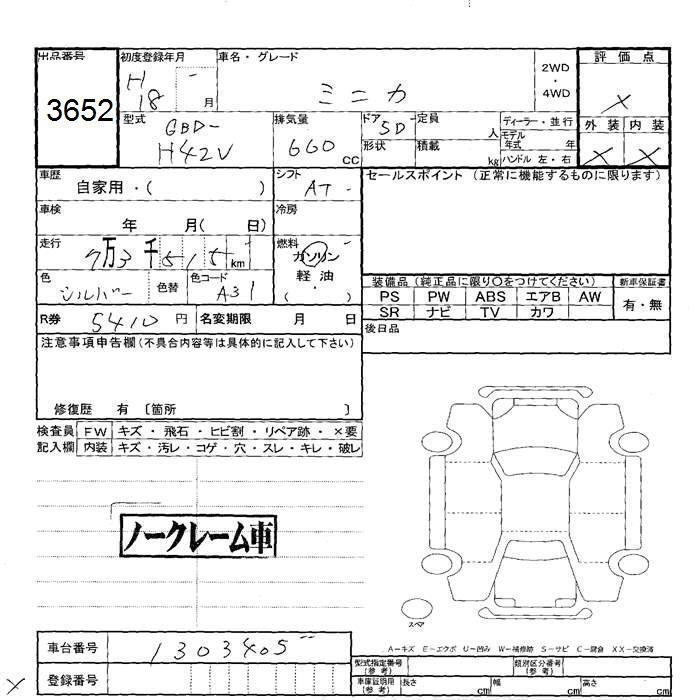 出品番号 初度登録年月 車名・グレード 2WD・4WD 評価点
3652 H18 - 月 ミニカ X
型式 GBD-H42V 排気量 660cc ドア 5D 定員 人 ディーラー・並行 外装 内装
形状 積載 kg モデル年式 年 X X
ハンドル 左・右
車歴 自家用・( ) シフト AT - セールスポイント (正常に機能するものに限ります)
車検 年 月( 日) 冷房
走行 7万3千515km 燃料 ガソリン 軽油・( )
色 シルバー 色替 色コード A31 装備品 (純正品に限り○をつけてください) 新車保証書
PS PW ABS エアB AW 有・無
SR ナビ TV カワ
R券 5410円 名変期限 月 日 後日品
注意事項申告欄(不具合内容等は具体的に記入して下さい)
修復歴 有 〔箇所 〕
検査員 FW キズ・飛石・ヒビ割・リペア跡・×要
記入欄 内装 キズ・汚レ・コゲ・穴・スレ・キレ・破レ
ノークレーム車
スペア
A-キズ E-エクボ U-凹み W-補修跡 S-サビ C-腐食 XX-交換済
車台番号 1303405 型式指定番号(参考) 類別区分番号(参考)
X 登録番号 車庫証明用(参考) 長さ cm 幅 cm 高さ cm